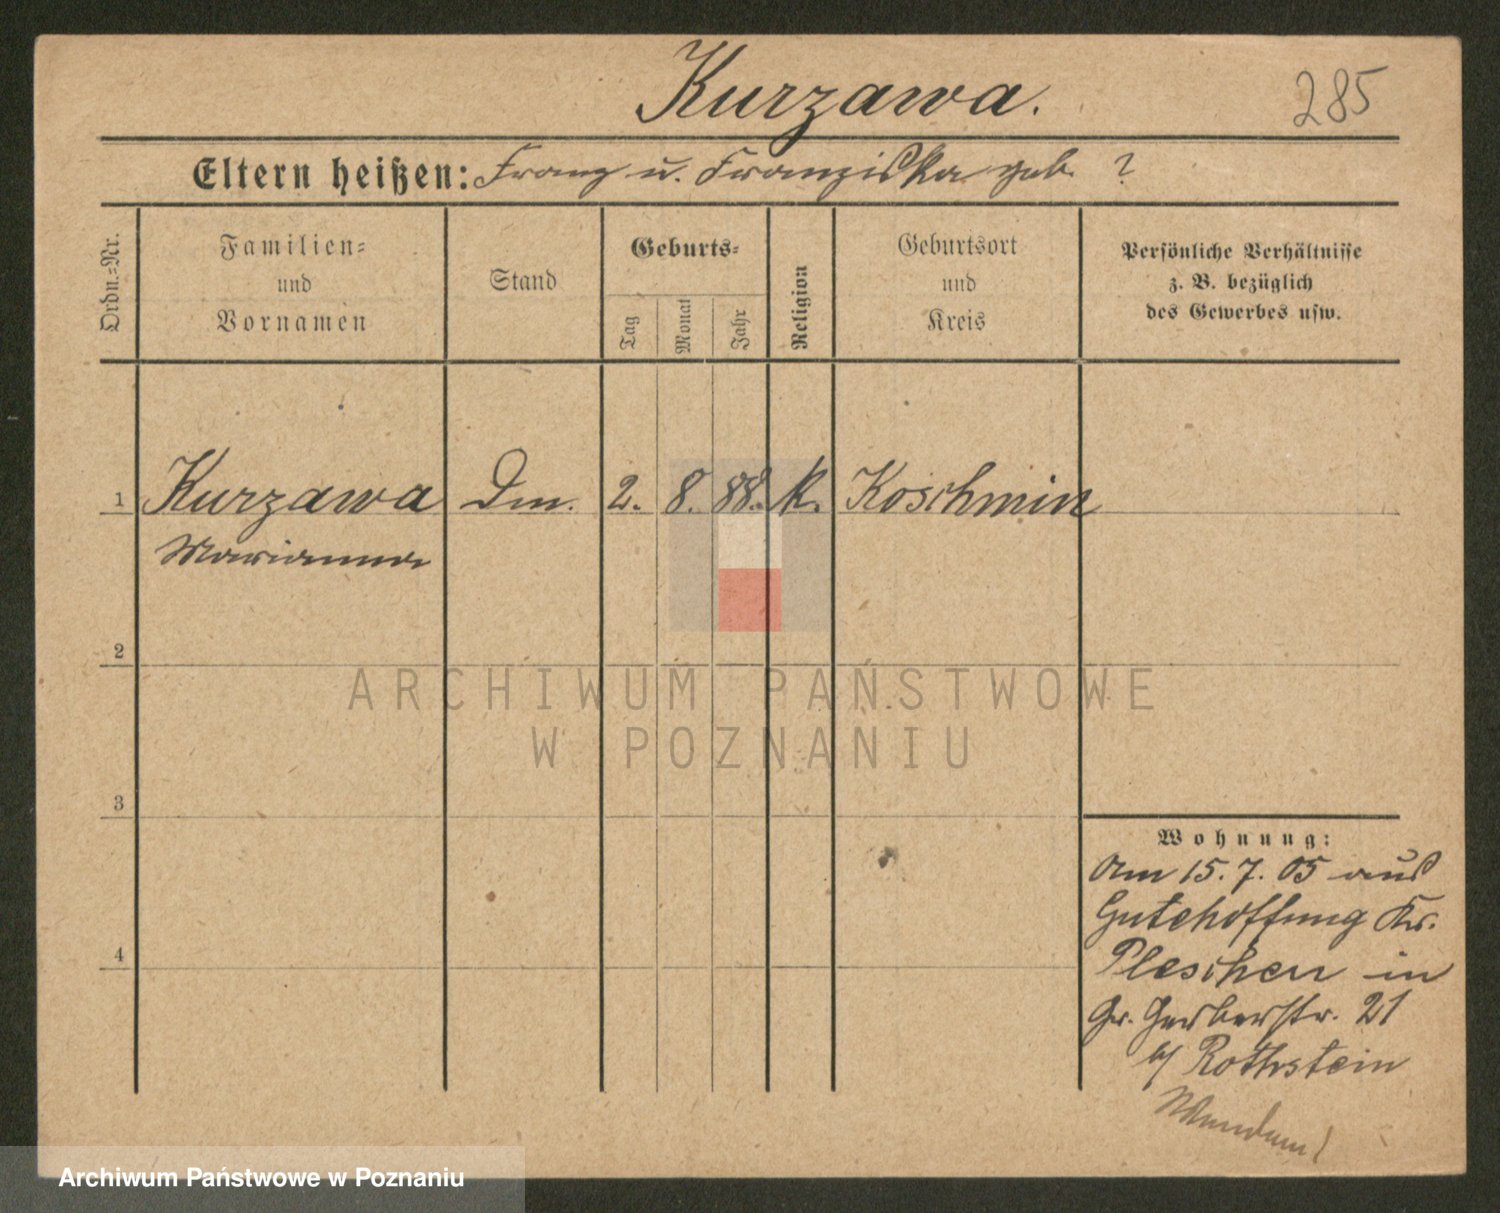 Kurzawa.
285
Eltern heißen: Franz u. Franziska geb. ?
Ordn.=Nr.
Familien=
und
Vornamen
Stand
Geburts=
Tag
Monat
Jahr
Religion
Geburtsort
und
Kreis
Persönliche Verhältnisse
z. B. bezüglich
des Gewerbes usw.
1 Kurzawa Dm. 2. 8. 88. k. Koschmin
Marianna
2
ARCHIWUM PAŃSTWOWE
W POZNANIU
3
Wohnung:
Am 15. 7. 05 aus
Gutehoffnung Kr.
4
Pleschen in
Gr. Gerberstr. 21
b/ Rothstein
Archiwum Państwowe w Poznaniu